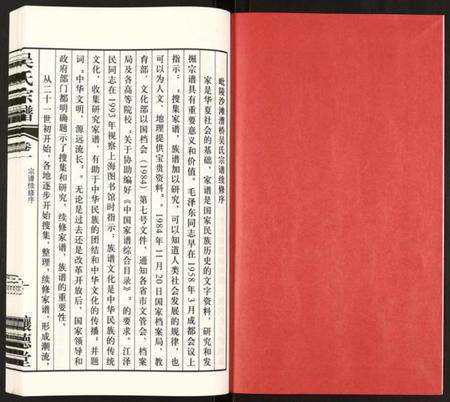 毗陵沙滩漕桥吴氏宗谱续修序
家是华夏社会的基础，家谱是国家民族历史的文字资料，研究和发
掘宗谱具有重要意义和价值。毛泽东同志早在1958年3月成都会议上
指示：“搜集家谱，族谱加以研究，可以知道人类社会发展的规律，也
可以为人文、地理提供宝贵资料。”1984年11月20日国家档案局、教
育部、文化部以国档会（1984）第七号文件，通知各省市文管会、档案
局及各高等院校《关于协助编好《中国家谱综合目录》》的要求。江泽
民同志在1993年视察上海图书馆时指示：族谱文化是中华民族的传统
文化，收集研究家谱，有助于中华民族的团结和中华文化的传播。并题
词：“中华文明，源远流长。”无论是过去还是改革开放后，国家领导和
政府部门都明确题示了搜集和研究，续修家谱、族谱的重要性。
从二十一世初开始，各地逐步开始搜集，整理，续修家谱，形成潮流，
吴氏宗谱
卷一
宗谱续修序
一
让德堂